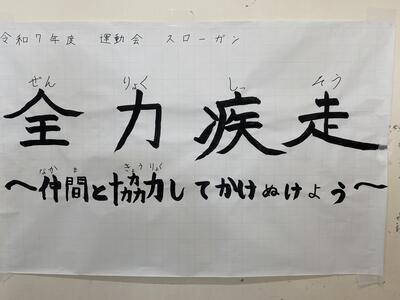 令和7年度 運動会 スローガン
ぜん りょく しっ そう
全力疾走
なか ま きょう りょく
〜仲間と協力してかけぬけよう〜